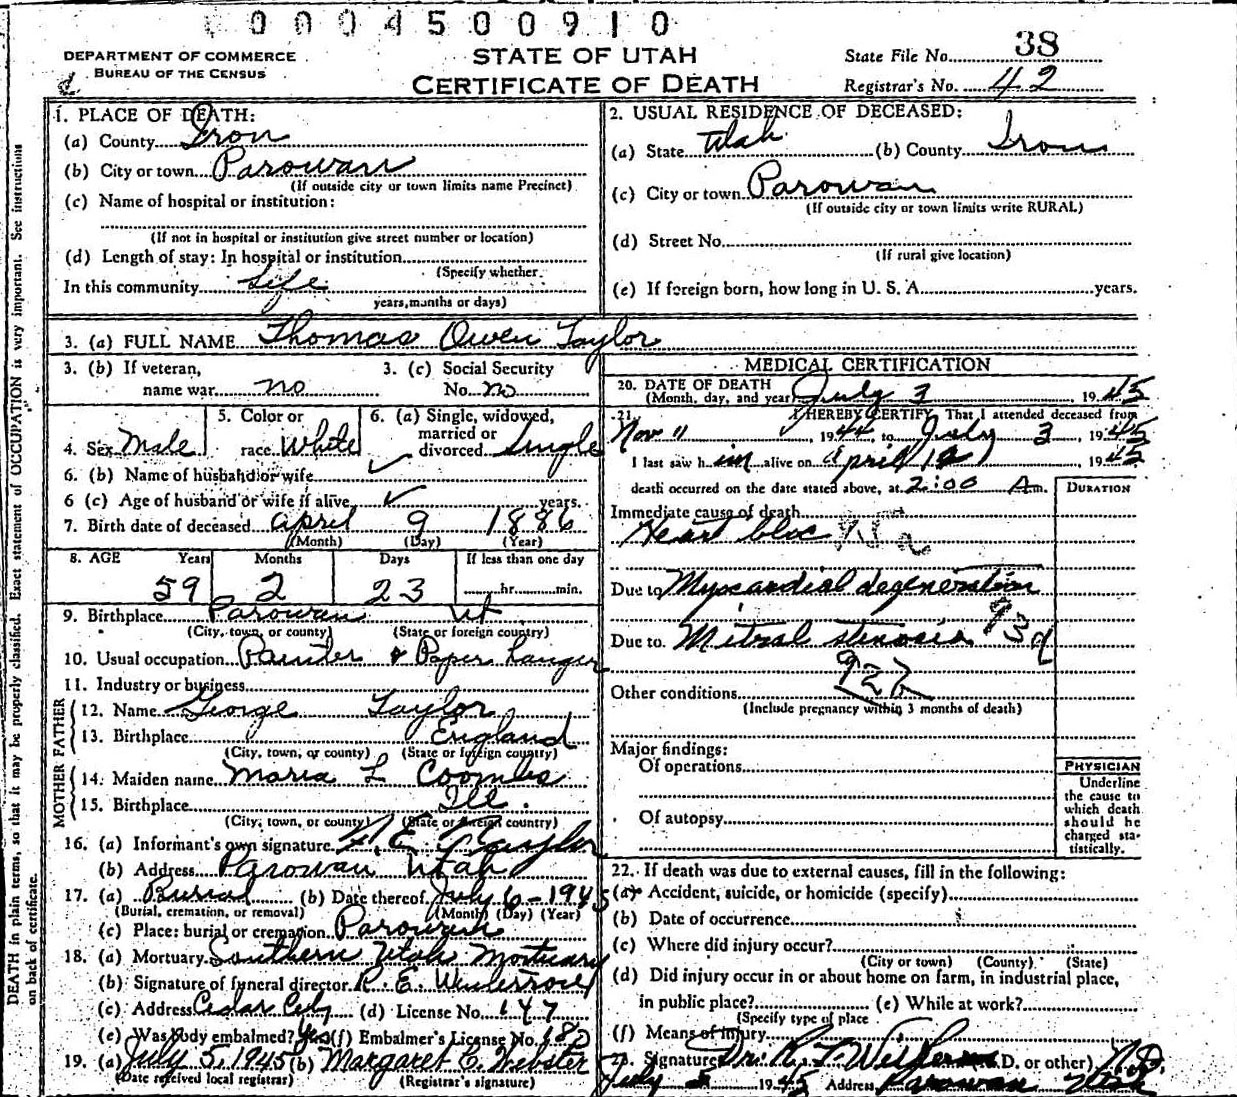 0004500910
DEPARTMENT OF COMMERCE
BUREAU OF THE CENSUS
STATE OF UTAH
CERTIFICATE OF DEATH
State File No. 38
Registrar's No. 42
1. PLACE OF DEATH:
(a) County Iron
(b) City or town Parowan
(If outside city or town limits name Precinct)
(c) Name of hospital or institution:
(If not in hospital or institution give street number or location)
(d) Length of stay: In hospital or institution
(Specify whether
In this community Life
years, months or days)
2. USUAL RESIDENCE OF DECEASED:
(a) State Utah (b) County Iron
(c) City or town Parowan
(If outside city or town limits write RURAL)
(d) Street No.
(If rural give location)
(e) If foreign born, how long in U. S. A. years.
3. (a) FULL NAME Thomas Owen Taylor
3. (b) If veteran, name war no
3. (c) Social Security No. no
4. Sex Male
5. Color or race White
6. (a) Single, widowed, married or divorced Single
6. (b) Name of husband or wife ✓
6 (c) Age of husband or wife if alive ✓ years.
7. Birth date of deceased April 9 1886
(Month) (Day) (Year)
8. AGE Years Months Days If less than one day
59 2 23 hr. min.
9. Birthplace Parowan Ut
(City, town, or county) (State or foreign country)
10. Usual occupation Painter & Paper hanger
11. Industry or business
FATHER
12. Name George Taylor
13. Birthplace England
(City, town, or county) (State or foreign country)
MOTHER
14. Maiden name Maria L Coombs
15. Birthplace Ill.
(City, town, or county) (State or foreign country)
16. (a) Informant's own signature Taylor
(b) Address Parowan Utah
17. (a) Burial (b) Date thereof July 6-1945
(Burial, cremation, or removal) (Month) (Day) (Year)
(c) Place: burial or cremation Parowan
18. (a) Mortuary Southern Utah Mortuary
(b) Signature of funeral director R. E.
(c) Address Cedar City (d) License No. 147
(e) Was body embalmed? Yes (f) Embalmer's License No. 182
19. (a) July 5, 1945 (b) Margaret C. Webster
(Date received local registrar) (Registrar's signature)
MEDICAL CERTIFICATION
20. DATE OF DEATH
(Month, day, and year) July 3 1945
21. I HEREBY CERTIFY, That I attended deceased from
Nov 1944, to July 3, 1945
I last saw him alive on April 1945
death occurred on the date stated above, at 2:00 Am.
DURATION
Immediate cause of death
Heart bloc
Due to Myocardial degeneration
93d
Due to Mitral stenosis
92b
Other conditions
(Include pregnancy within 3 months of death)
Major findings:
Of operations
Of autopsy
PHYSICIAN
Underline
the cause to
which death
should be
charged sta-
tistically.
22. If death was due to external causes, fill in the following:
(a) Accident, suicide, or homicide (specify)
(b) Date of occurrence
(c) Where did injury occur?
(City or town) (County) (State)
(d) Did injury occur in or about home on farm, in industrial place,
in public place? (e) While at work?
(Specify type of place
(f) Means of injury
23. Signature Dr. (M. D. or other) M.D.
July 5 1945 Address Parowan Utah
DEATH in plain terms, so that it may be properly classified. Exact statement of OCCUPATION is very important. See instructions
on back of certificate.